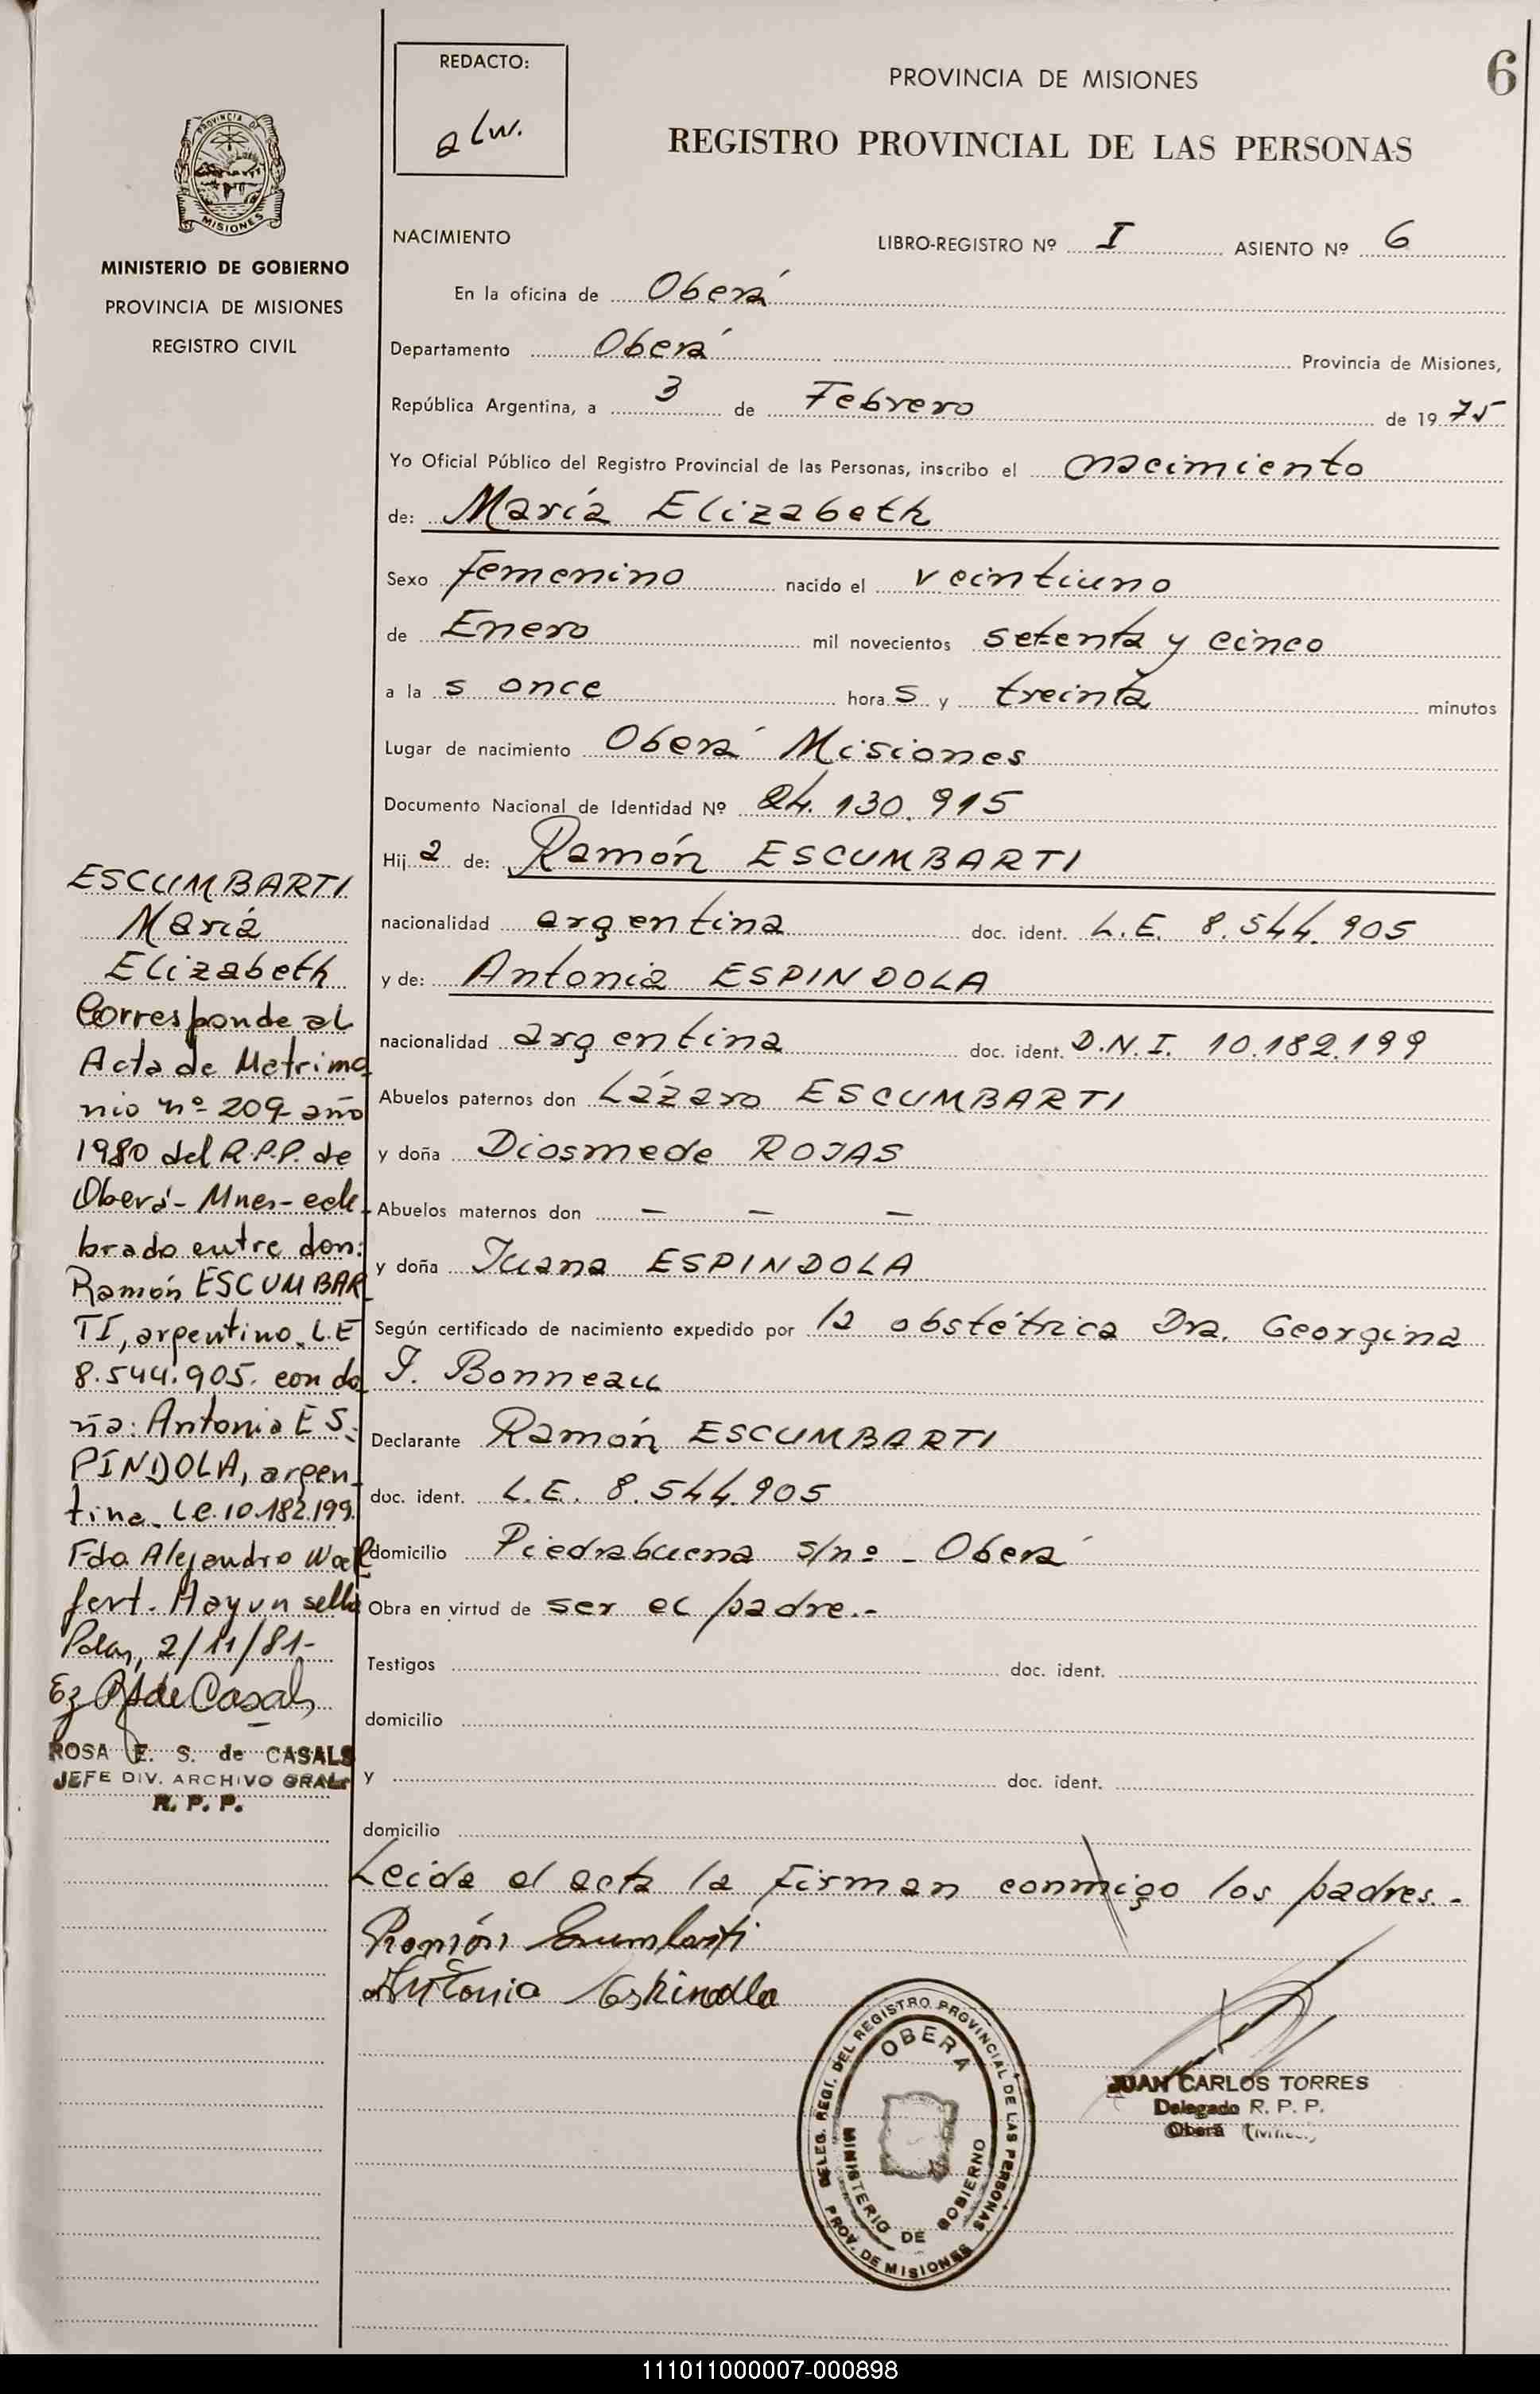 REDACTO:
alw.
PROVINCIA DE MISIONES
6
REGISTRO PROVINCIAL DE LAS PERSONAS
PROVINCIA DE
MISIONES
MINISTERIO DE GOBIERNO
PROVINCIA DE MISIONES
REGISTRO CIVIL
NACIMIENTO
LIBRO-REGISTRO Nº I ASIENTO Nº 6
En la oficina de Oberá
Departamento Oberá Provincia de Misiones,
República Argentina, a 3 de Febrero de 1975
Yo Oficial Público del Registro Provincial de las Personas, inscribo el nacimiento
de: María Elizabeth
Sexo femenino nacido el veintiuno
de Enero mil novecientos setenta y cinco
a la s once hora s y treinta minutos
Lugar de nacimiento Oberá Misiones
Documento Nacional de Identidad Nº 24.130.915
Hij a de: Ramón ESCUMBARTI
nacionalidad argentina doc. ident. L.E. 8.544.905
y de: Antonia ESPINDOLA
nacionalidad argentina doc. ident. D.N.I. 10.182.199
Abuelos paternos don Lázaro ESCUMBARTI
y doña Diosmede ROJAS
Abuelos maternos don — — —
y doña Juana ESPINDOLA
Según certificado de nacimiento expedido por la obstétrica Dra. Georgina
J. Bonneau
Declarante Ramón ESCUMBARTI
doc. ident. L.E. 8.544.905
domicilio Piedrabuena s/nº - Oberá
Obra en virtud de ser el padre.-
Testigos doc. ident.
domicilio
y doc. ident.
domicilio
Leída el acta la firman conmigo los padres.-
Ramón Escumbarti
Antonia Espindola
ESCUMBARTI
María
Elizabeth
Corresponde al
Acta de Matrimo
nio nº 209 año
1980 del R.P.P. de
Oberá - Mnes - cele
brado entre don:
Ramón ESCUMBAR
TI, argentino, L.E
8.544.905. con do
ña: Antonia ES-
PÍNDOLA, argen-
tina. LC. 10.182.199.
Fdo. Alejandro
Hay un sello
Pdas, 2/11/81-
de Casals
ROSA E. S. de CASALS
JEFE DIV. ARCHIVO GRAL.
R. P. P.
DELEG. REGI. DEL REGISTRO PROVINCIAL DE LAS PERSONAS
OBERA
MINISTERIO DE GOBIERNO
PROV. DE MISIONES
JUAN CARLOS TORRES
Delegado R. P. P.
Oberá (Mnes.)
111011000007-000898